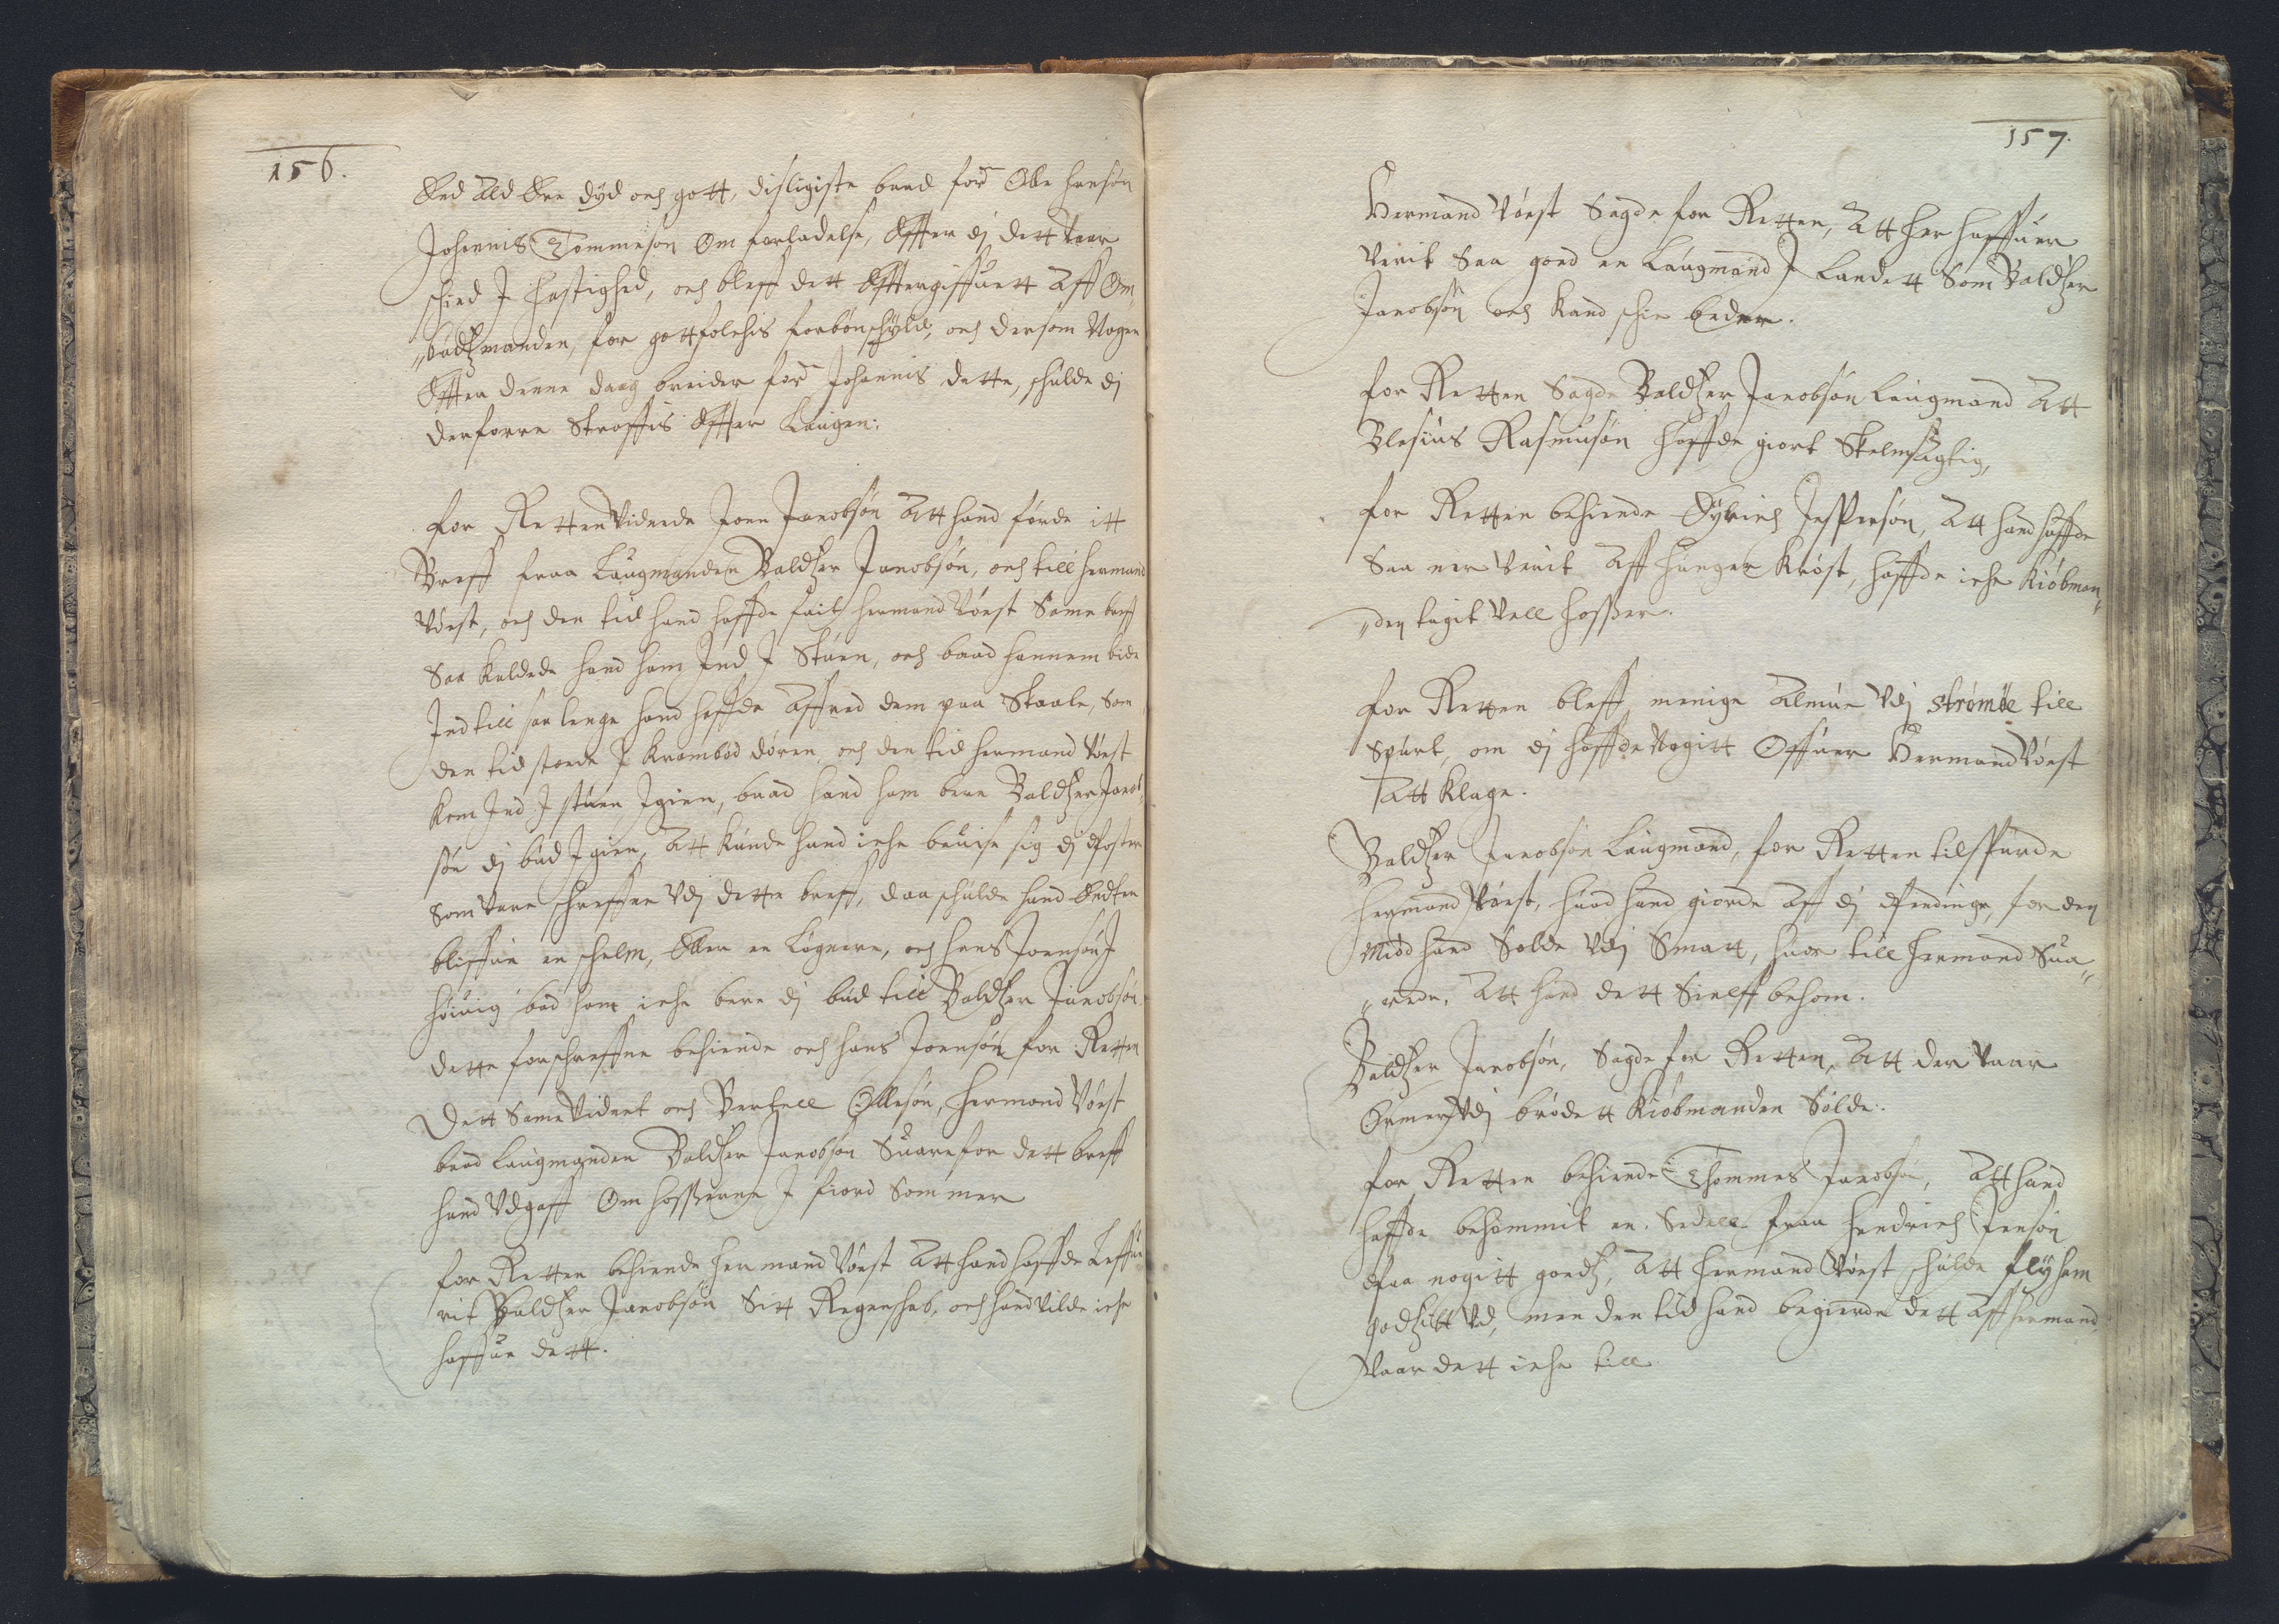 156.
End ald Ære dyd och gott, disligiste baad for:ne Olle hansøn
Johannis Tommeson Om forladelse, Effter dj dett vaar
schied J hastighed, och bleff dett Efftergiffuett Aff Om
„bödtzmanden, for gottfolchis forbön schyld, och dersom Nogen
Effter denne daag breider for:ne Johannis dette, schulde dj
derforre Straffis Effter Laugen:
for Retten Vidnede Joen Jacobsön Att hand förde itt
Breff fraa Laugmanden Baldtzer Jacobsön, och till hermand
Vörst, och den tid hand haffde fait hermand Vörst Same breff
Saa kaldede hand ham Ind J Stuen, och baad hannem bide
Indtill saa lenge hand haffde Afferd dem paa Skaale, Som
den tid stoede J krambod dören, och den tid hermand Vörst
kom Ind J stuen Igien, baad hand ham bere Baldtzer Jacob
sön dj bud Igien, Att kunde hand iche beuise sig dj Poster
Som vare schreffne Vdj dette breff, daa schulde hand Endten
bliffue en schelm, Eller en Løgnere, och hans Joensön J
höiuig bad ham iche bere dj bud till Baldtzer Jacobsön
dette forschreffne bekiende och hans Joensön for Retten
Dett Same Vidnet och Bertell Ollesön, hermand Vörst
baad Laugmanden Baldtzer Jacobsön Suare for dett breff
hand Vdgaff Om hosserne J fiord Sommer
for Retten bekiende hermand Vörst Att hand haffde Leffue
rit Baldtzer Jacobsön Sitt Regenschab, och hand vilde iche
haffue dett.
157.
Hermand Vörst Sagde for Retten, Att her haffuer
Verit Saa goed en Laugmand J Landett Som Baldtzer
Jacobsön och kand schie beder.
for Retten Sagde Baldtzer Jacobsön Laugmand Att
Blesius Rasmusön haffde giort Skelmsagtig,
for Retten bekiende Dyrich Jesspersön, Att hand haffde
Saa ner Verit Aff hunger krøst, haffde iche Kiöbman„
„den tagit Vell hosser.
for Retten bleff menige Almue Vdj Strömöe till
Spurt, om dj haffde Nogitt Offuer Hermand Vörst
Att klage.
Baldtzer Jacobsön Laugmand, for Retten tilspurde
Hermand Vörst, huad hand giorde Aff dj Pendinge, for den
Miöd hand Solde Vdj Smatt, huor till hermand Sua„
„rede, Att hand dett Sielff behom.
Baldtzer Jacobsön, Sagde for Retten, Att der vaar
Ormer Vdj brödett Kiöbmanden Solde.
for Retten bekiende Thommes Jacobsön, Att hand
haffde bekommit en Sedell fraa Hendrich Jensön
Paa nogitt goedtz, Att hermand Vörst schulde flÿ ham
godtzitt Vd, men den tid hand begierde dett Aff hermand,
Vaar dett iche till